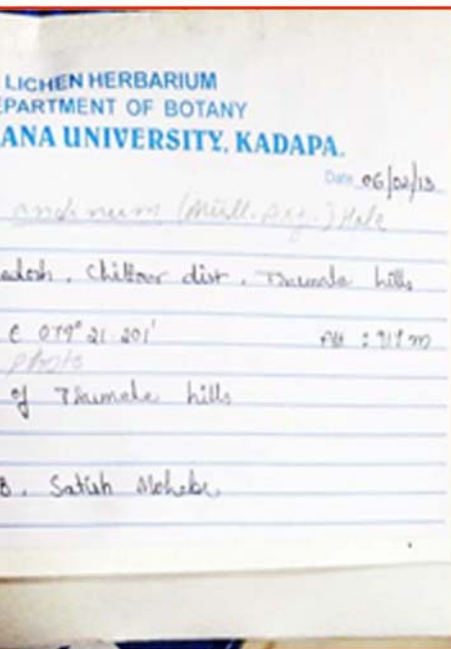 LICHEN HERBARIUM
EPARTMENT OF BOTANY
ANA UNIVERSITY, KADAPA.
Date 06/02/13
andinum (Müll. Arg.) Hale
adesh, Chittoor dist, Tirumala hills
E 079° 21 201' Alt : 919 m
photo
of Tirumala hills
B. Satish Mohabe